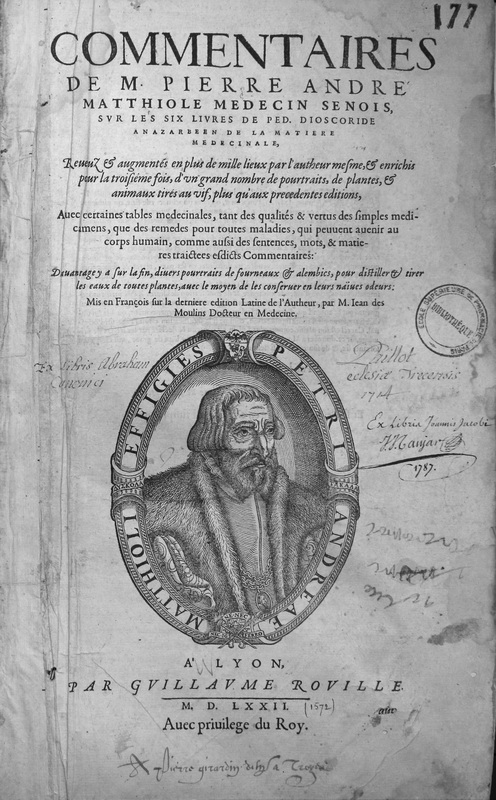 177
COMMENTAIRES
DE M. PIERRE ANDRE
MATTHIOLE MEDECIN SENOIS,
SVR LES SIX LIVRES DE PED. DIOSCORIDE
ANAZARBEEN DE LA MATIERE
MEDECINALE,
Reueuz & augmentés en plus de mille lieux par l'autheur mesme, & enrichis
pour la troisiéme fois, d'vn grand nombre de pourtraits, de plantes, &
animaux tirés au vif, plus qu'aux precedentes editions,
Auec certaines tables medecinales, tant des qualités & vertus des simples medi-
camens, que des remedes pour toutes maladies, qui peuuent auenir au
corps humain, comme aussi des sentences, mots, & matie-
res traictees esdicts Commentaires:
Dauantage y a sur la fin, diuers pourtraits de fourneaux & alembics, pour distiller & tirer
les eaux de toutes plantes, auec le moyen de les conseruer en leurs naïues odeurs:
Mis en François sur la derniere edition Latine de l'Autheur, par M. Iean des
Moulins Docteur en Medecine.
ECOLE SUPERIEURE DE PHARMACIE
BIBLIOTHÈQUE
Ex libris Abraham
1714
Ex Libris Joannis Jacobi
1787.
PETRI ANDREAE MATTHIOLI EFFIGIES
A' LYON,
PAR GVILLAVME ROVILLE.
M. D. LXXII. (1572)
Auec priuilege du Roy.
Pierre girardin